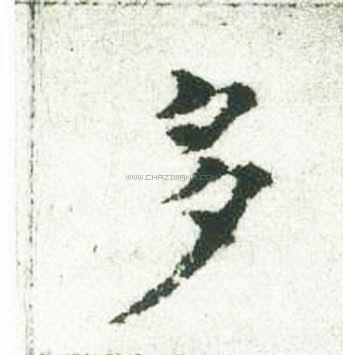 多
WWW.CHAZIWANG.COM